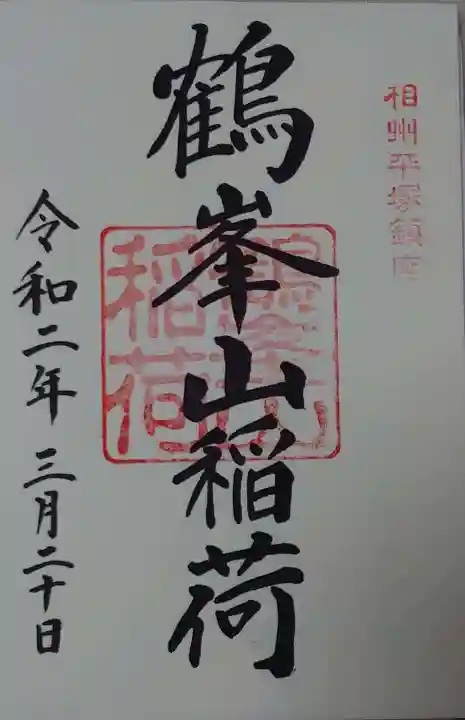 相州平塚鎮座
鶴峯山稲荷
鶴峯山
稲荷
令和二年 三月二十日